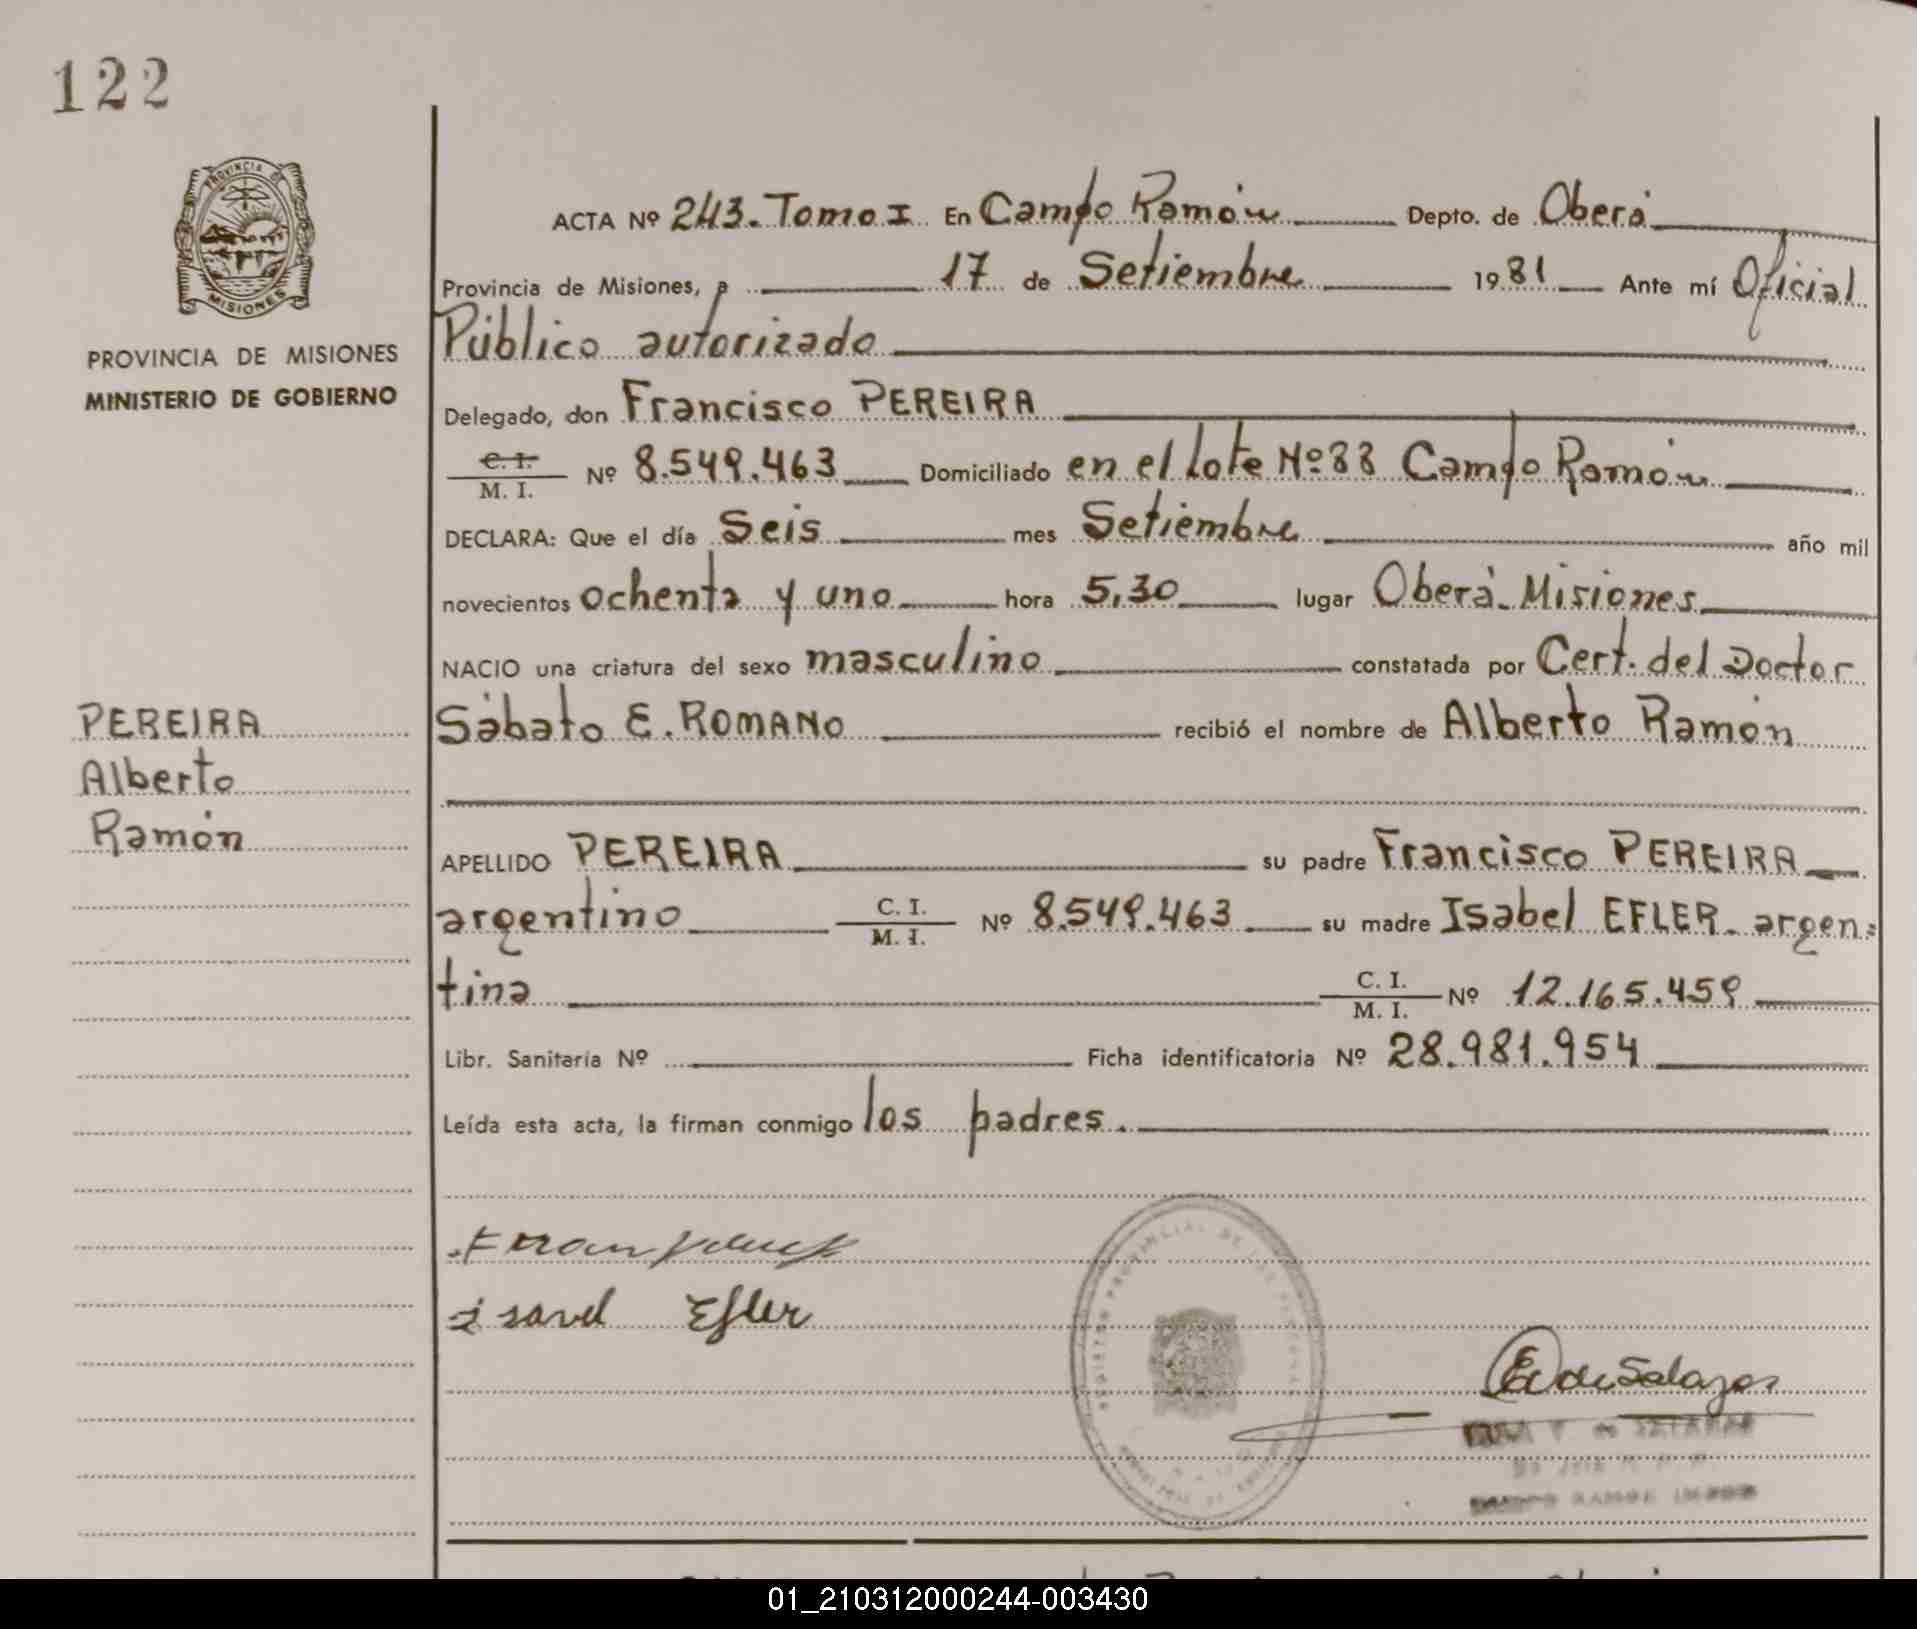 122
PROVINCIA DE
MISIONES
PROVINCIA DE MISIONES
MINISTERIO DE GOBIERNO
ACTA Nº 243. Tomo I En Campo Ramón Depto. de Oberá
Provincia de Misiones, a 17 de Setiembre 1981 Ante mí Oficial
Público autorizado
Delegado, don Francisco PEREIRA
C. I.
M. I. Nº 8.549.463 Domiciliado en el Lote Nº 88 Campo Ramón
DECLARA: Que el día Seis mes Setiembre año mil
novecientos ochenta y uno hora 5,30 lugar Oberá-Misiones
NACIO una criatura del sexo masculino constatada por Cert. del Doctor
Sábato E. ROMANO recibió el nombre de Alberto Ramón
PEREIRA
Alberto
Ramón
APELLIDO PEREIRA su padre Francisco PEREIRA
argentino C. I. M. I. Nº 8.549.463 su madre Isabel EFLER- argen-
tina C. I. M. I. Nº 12.165.459
Libr. Sanitaria Nº Ficha identificatoria Nº 28.981.954
Leída esta acta, la firman conmigo los padres.
isavel Efler
REGISTRO PROVINCIAL DE LAS PERSONAS
E V de Salazar
01_210312000244-003430